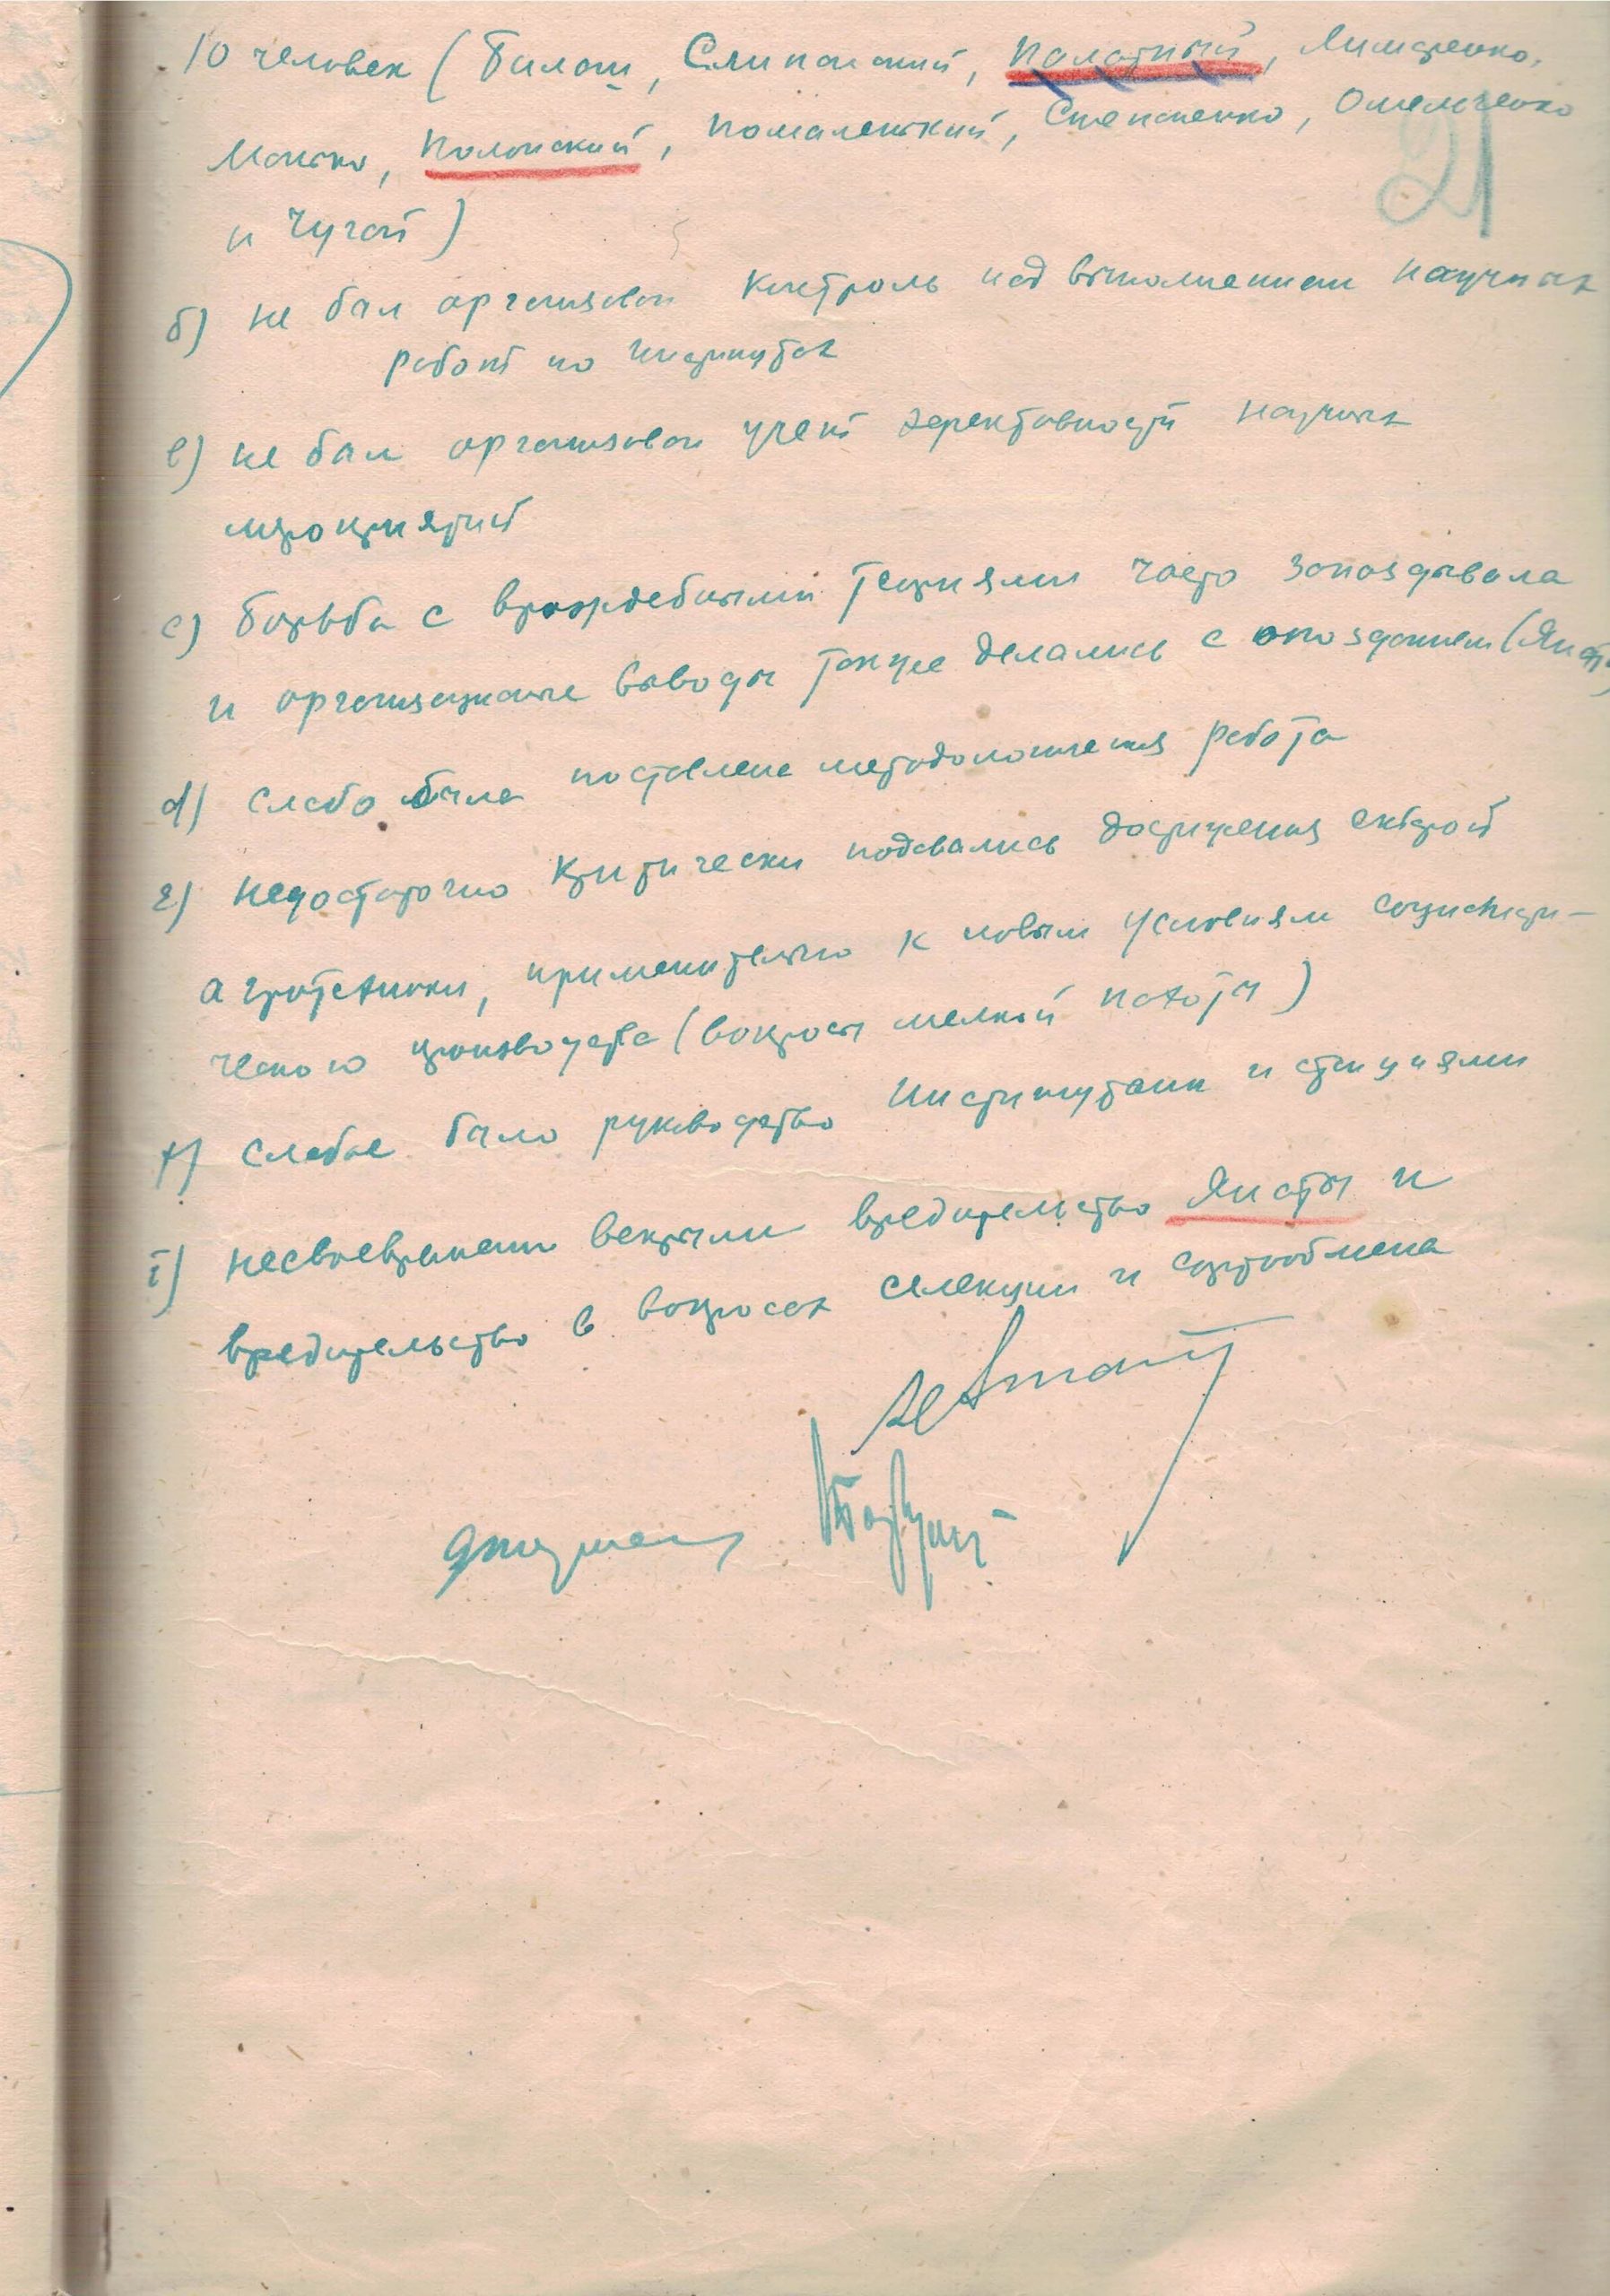 10 человек (Билаш, Слипанский, Полотный, Лимаренко,
Манько, Полонский, Помаленький, Степаненко, Омельченко
21
и Чугай)
б) не был организован контроль над выполнением научных
работ по институтах
в) не был организован учет эффективности научных
мероприятий
с) борьба с враждебными теориями часто запаздывала
и организационные выводы также делались с опозданием (Яната)
d) слабо была поставлена методологическая работа
г) недостаточно критически подавались достижения старой
агротехники, применительно к новым условиям социалисти-
ческого производства (вопросы мелкой пахоты)
f) слабое было руководство институтами и станциями
i) несвоевременно вскрыли вредительство Янаты и
вредительство в вопросах селекции и сортообмена